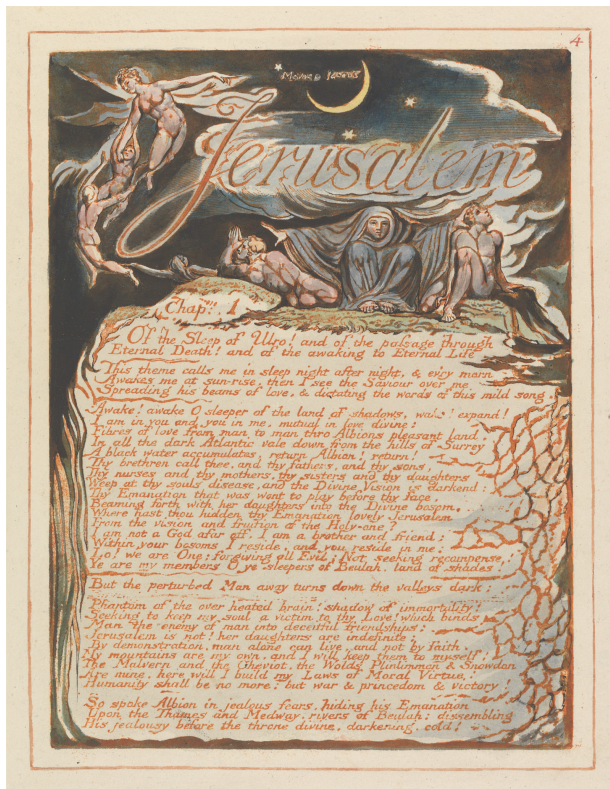 4
Μονος ὁ Ιεσους
Jerusalem
Chap: 1
Of the Sleep of Ulro! and of the passage through
Eternal Death! and of the awaking to Eternal Life
This theme calls me in sleep night after night, & ev'ry morn
Awakes me at sun-rise, then I see the Saviour over me
Spreading his beams of love, & dictating the words of this mild song.
Awake! awake O sleeper of the land of shadows, wake! expand!
I am in you and you in me, mutual in love divine:
Fibres of love from man to man thro Albions pleasant land.
In all the dark Atlantic vale down from the hills of Surrey
A black water accumulates, return Albion! return!
Thy brethren call thee, and thy fathers, and thy sons,
Thy nurses and thy mothers, thy sisters and thy daughters
Weep at thy souls disease, and the Divine Vision is darkend:
Thy Emanation that was wont to play before thy face,
Beaming forth with her daughters into the Divine bosom,
Where hast thou hidden thy Emanation lovely Jerusalem
From the vision and fruition of the Holy-one?
I am not a God afar off, I am a brother and friend;
Within your bosoms I reside, and you reside in me:
Lo! we are One; forgiving all Evil; Not seeking recompense,
Ye are my members O ye sleepers of Beulah, land of shades!
But the perturbed Man away turns down the valleys dark;
Phantom of the over heated brain! shadow of immortality!
Seeking to keep my soul a victim to thy Love! which binds
Man the enemy of man into deceitful friendships:
Jerusalem is not! her daughters are indefinite:
By demonstration, man alone can live, and not by faith.
My mountains are my own, and I will keep them to myself;
The Malvern and the Cheviot, the Wolds Plinlimmon & Snowdon
Are mine, here will I build my Laws of Moral Virtue.
Humanity shall be no more: but war & princedom & victory!
So spoke Albion in jealous fears, hiding his Emanation
Upon the Thames and Medway, rivers of Beulah: dissembling
His jealousy before the throne divine, darkening, cold!